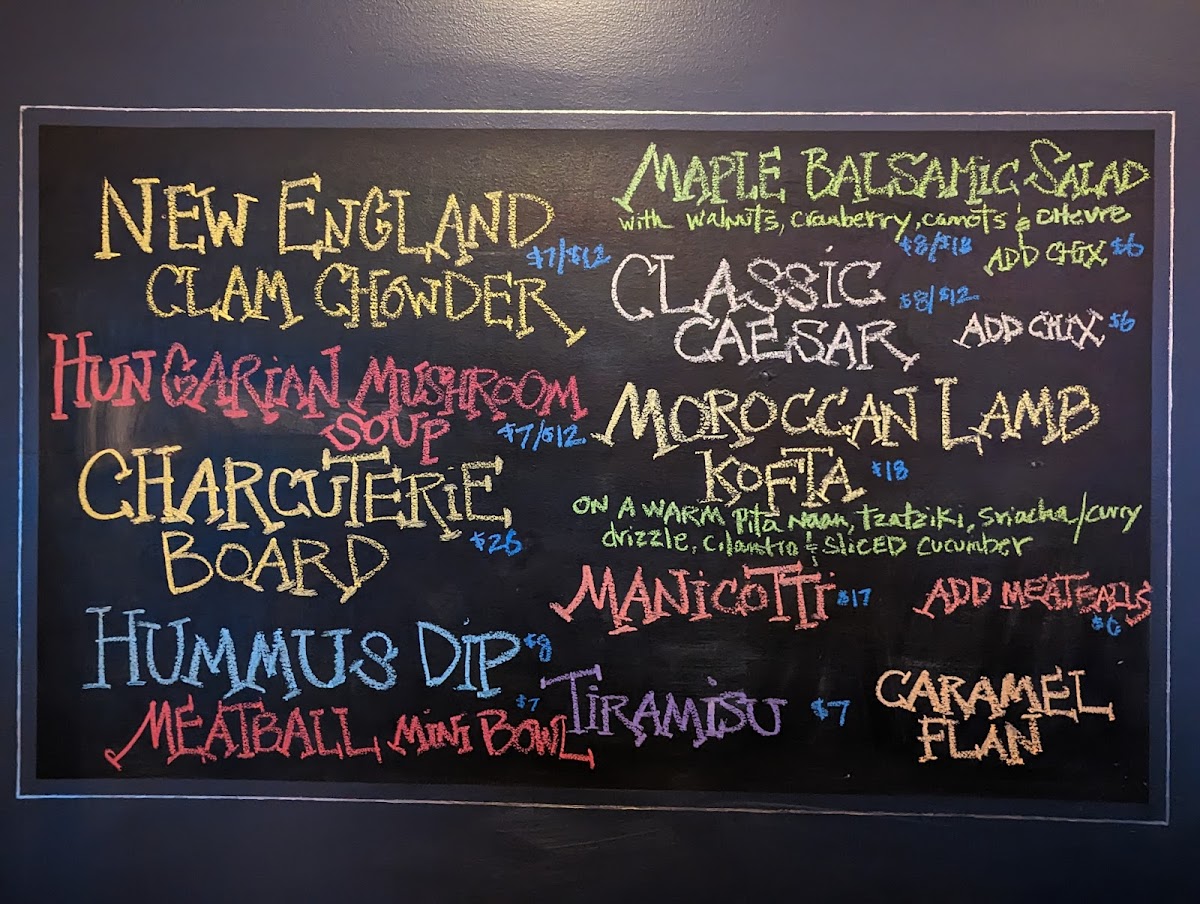 NEW ENGLAND
CLAM CHOWDER $7/$12
HUNGARIAN MUSHROOM
SOUP $7/$12
CHARCUTERIE
BOARD
HUMMUS DIP $8
MEATBALL MINI BOWL $7
MAPLE BALSAMIC SALAD
with walnuts, cranberry, carrots & CHEVRE
ADD CHIX $6
CLASSIC $8/$12
CAESAR ADD CHIX $6
MOROCCAN LAMB
KOFTA $18
ON A WARM Pita Naan, Tzatziki, Sriacha/curry
drizzle, Cilantro & SLICED CUCUMBER
MANICOTTI $17 ADD MEATBALLS
$6
TIRAMISU $7
CARAMEL
FLAN